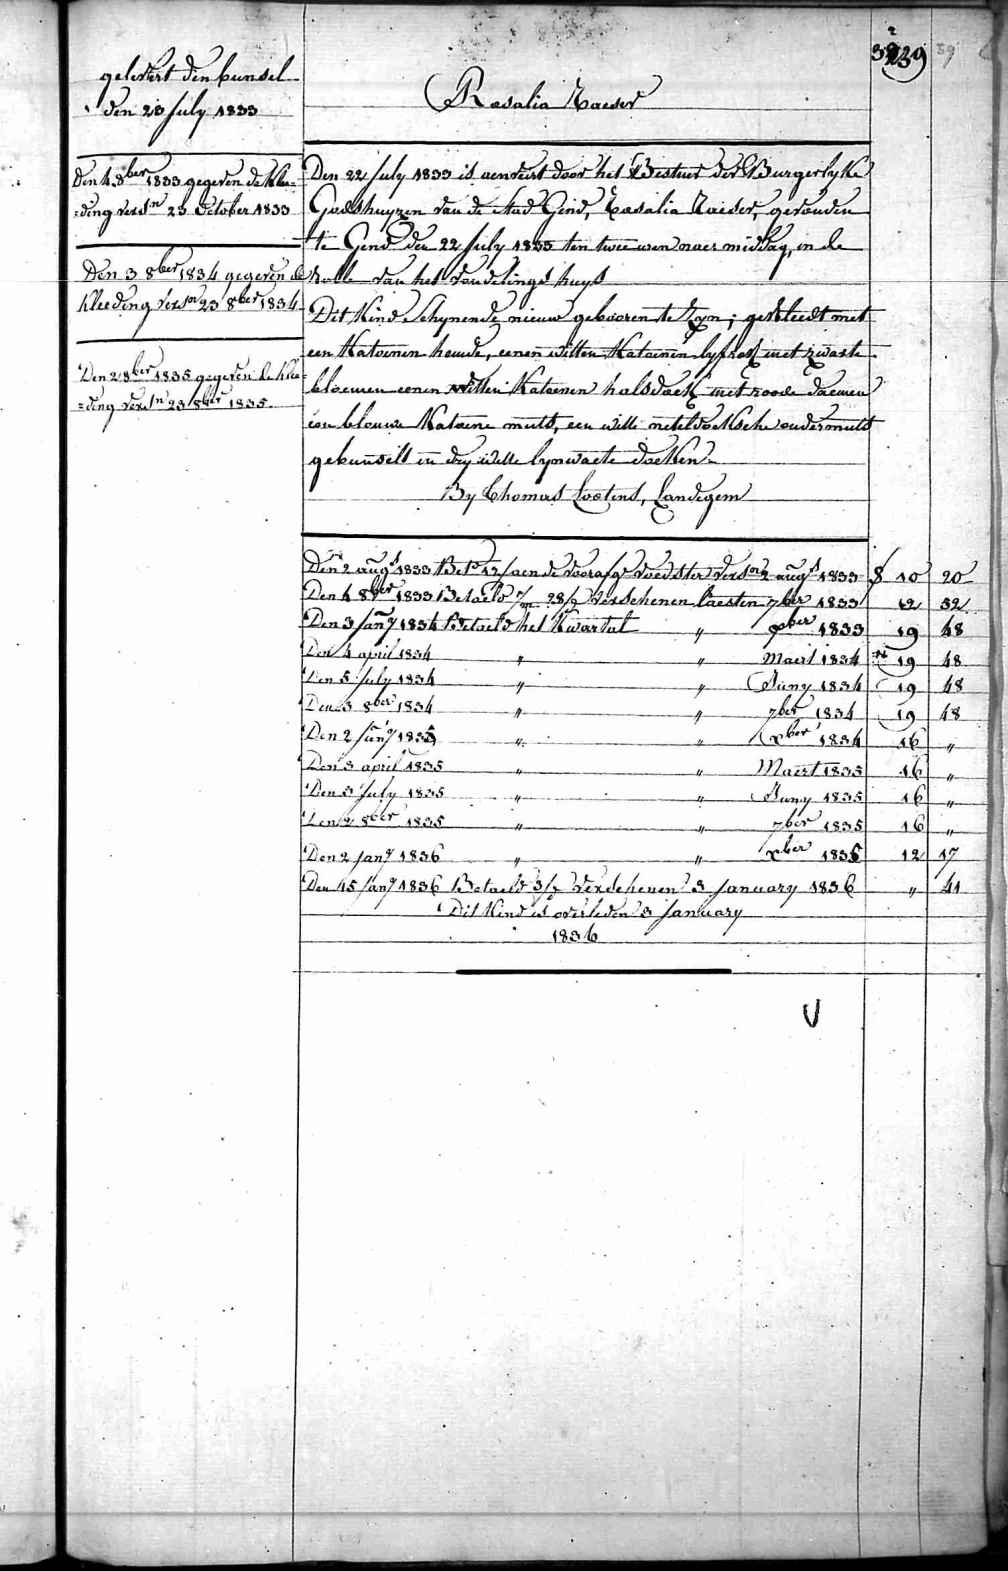 39
239
39
gelevert den bunsel
den 23 July 1833
Den 4 8ber 1833 gegeven de klee=
=ding versn 23 October 1833
Den 3 8ber 1834 gegeven de
kleeding versn 23 8ber 1834
Den 2 8ber 1835 gegeven de klee=
=ding versn 23 8ber 1835.
Rosalia Naeser
Den 22 July 1833 is aenveirt door het Bestuer der Burgerlyke
Godshuyzen van de stad Gend, Rosalia Naeser, gevonden
te Gend den 22 July 1833 ten twee uren naer middag, in de
rolle van het vondelings huys
Dit Kind schynende nieuw gebooren te zyn; gekleedt met
een Katoenen hemde, eenen witten Katoenen lyfrok met zwarte
bloemen eenen witten Katoenen halsdoek met roode
een blauwe Katoene muts, een witte neteldoeksche ondermuts
gebunselt in dry witte lynwaete doeken
By Thomas Lootens, Landegem
Den 2 augs 1833 Bet. 12 voorafge voedster versn 2 augs 1833 8 10 20
Den 4 8ber 1833 Betaelt 28/ verschenen laesten 7ber 1833 12 32
Den 3 Jany 1834 Betaelt het Kwartal " xber 1833 19 48
Den 4 april 1834 " " Maert 1834 19 48
Den 5 July 1834 " " Juny 1834 19 48
Den 3 8ber 1834 " " 7ber 1834 19 48
Den 2 Jany 1835 " " xber 1834 16 "
Den 3 april 1835 " " Maert 1835 16 "
Den 3 July 1835 " " Juny 1835 16 "
Den 2 8ber 1835 " " 7ber 1835 16 "
Den 2 Jany 1836 " " xber 1835 12 17
Den 15 Jany 1836 Betaelt 3/ verschenen 3 January 1836 " 41
Dit Kind is overleden 3 January
1836